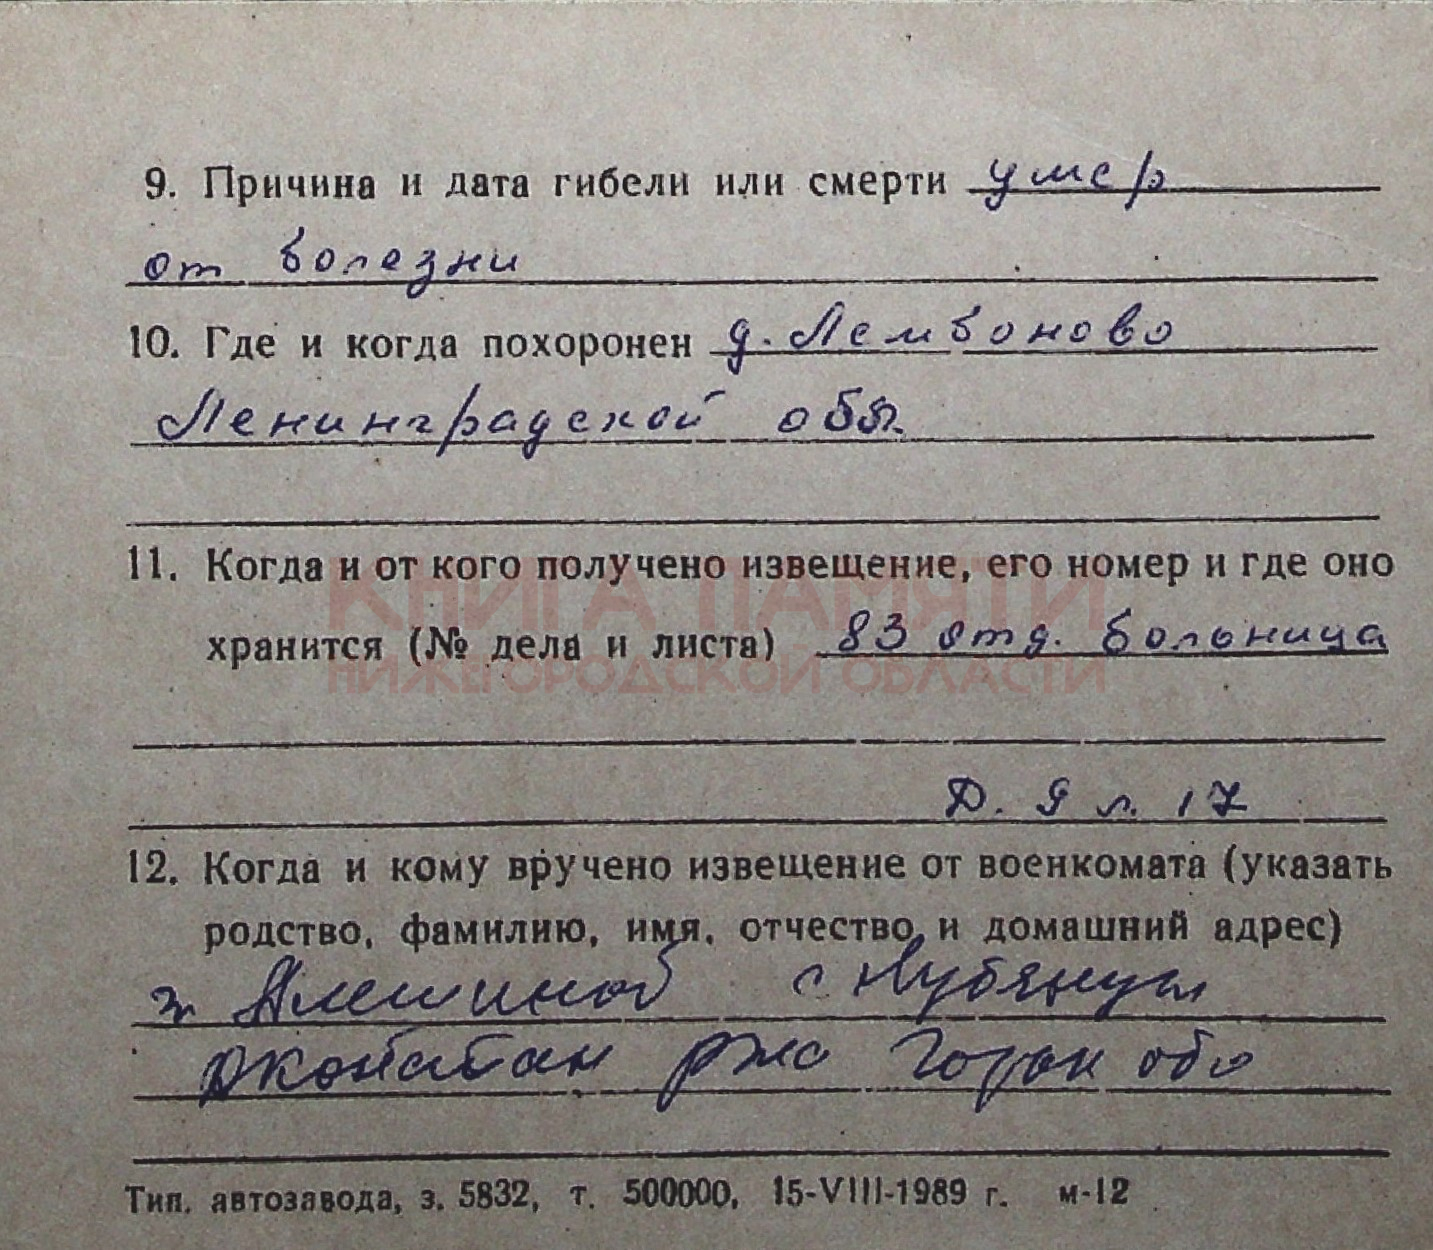 9. Причина и дата гибели или смерти умер
от болезни
10. Где и когда похоронен д. Лембоново
Ленинградской обл.
11. Когда и от кого получено извещение, его номер и где оно
КНИГА ПАМЯТИ
хранится (№ дела и листа) 83 отд. больница
НИЖЕГОРОДСКОЙ ОБЛАСТИ
Д. 9 л. 17
12. Когда и кому вручено извещение от военкомата (указать
родство, фамилию, имя, отчество и домашний адрес)
ж Алешиной с Лубянцы
Горьк обл
Тип. автозавода, з. 5832, т. 500000, 15-VIII-1989 г. м-12